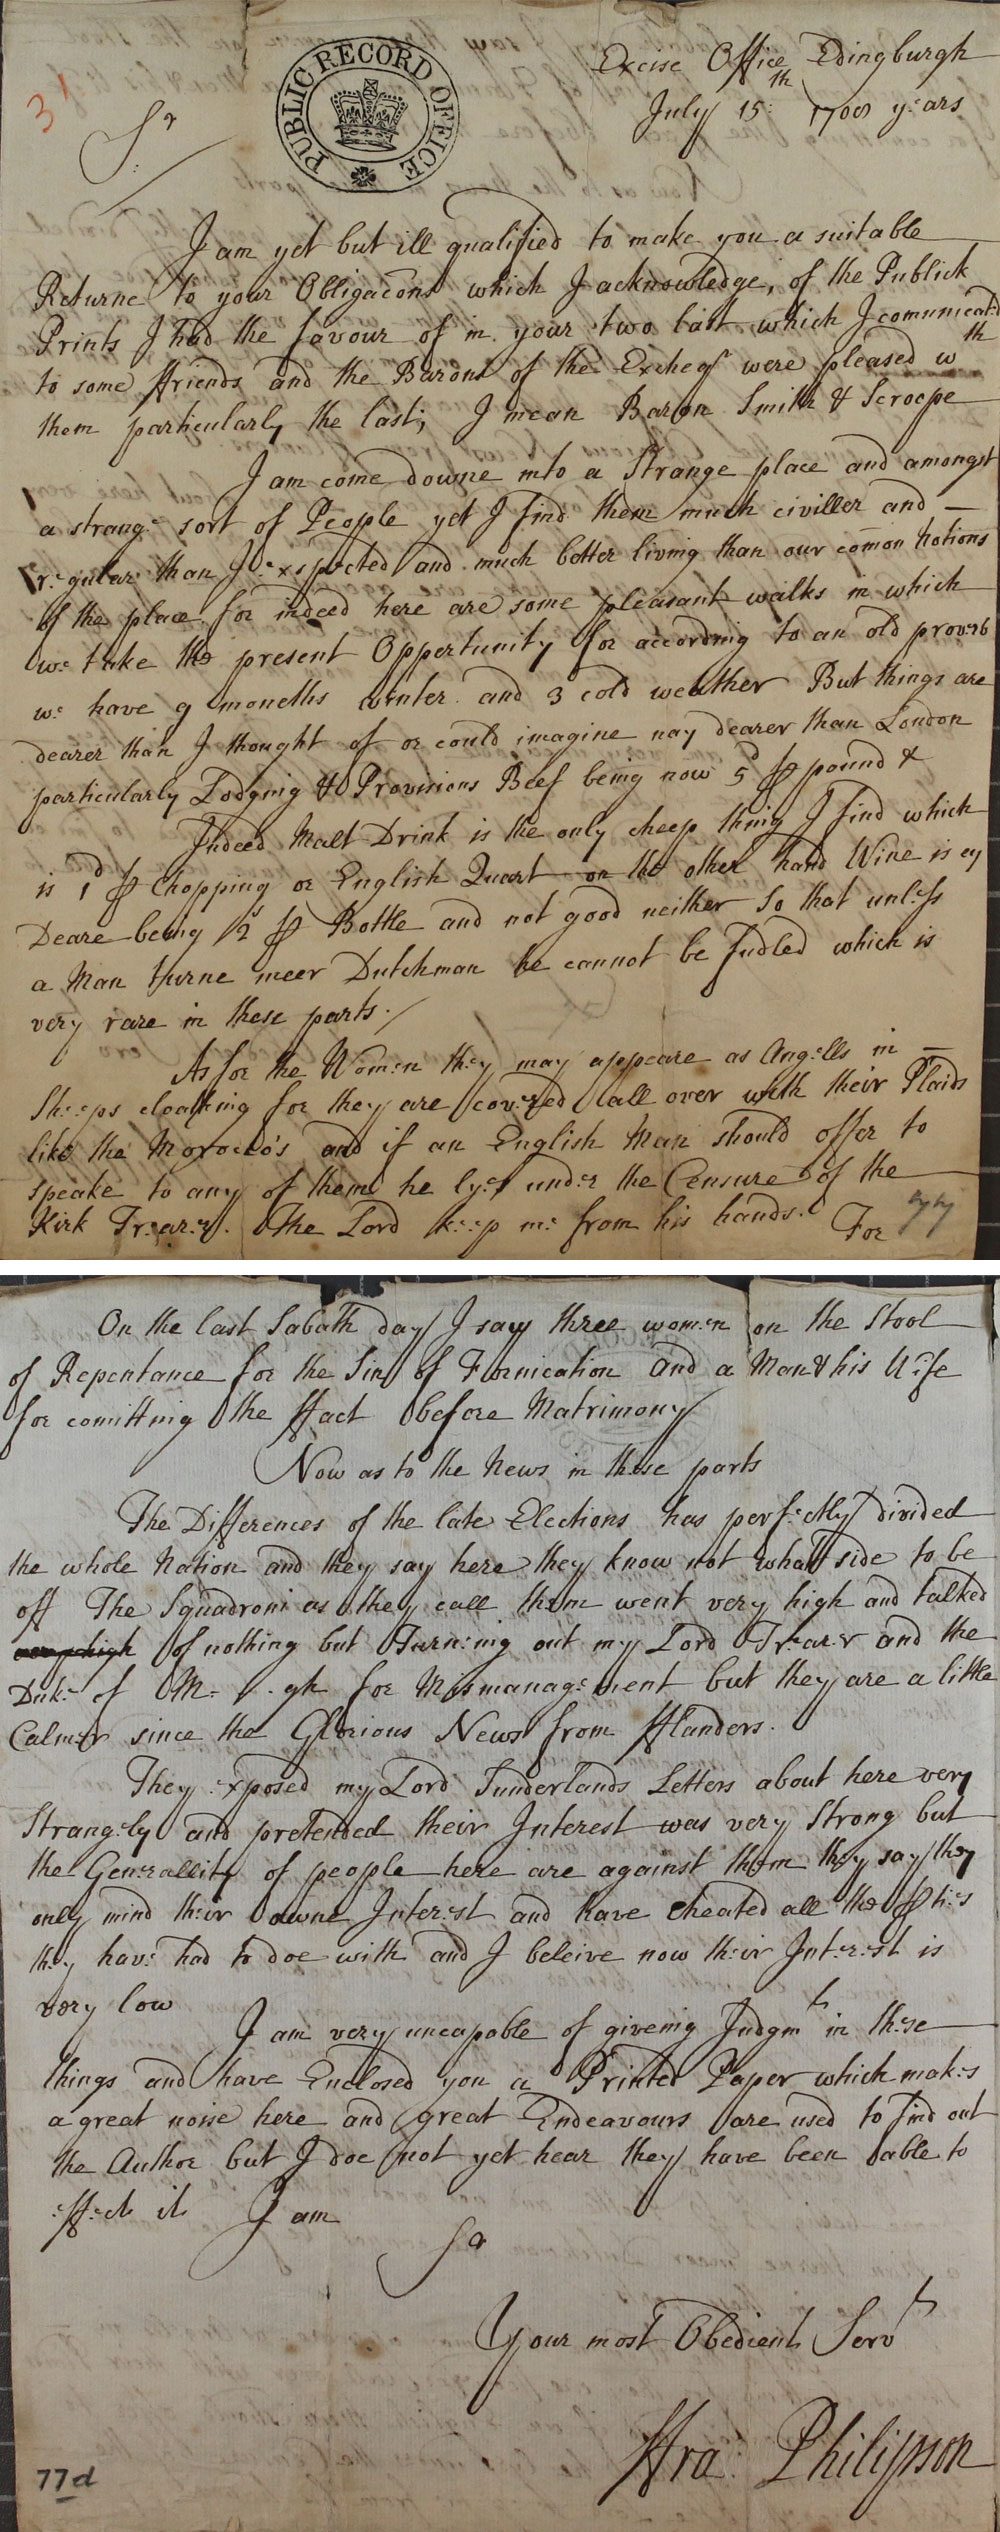 31
PUBLIC RECORD OFFICE
Excise Office Edingburgh
July 15th: 1708 years
Sr
I am yet but ill qualified to make you a suitable
Returne to your Obligacons which I acknowledge, of the Publick
Prints I had the favour of in your two last which I comunicated
to some ffriends and the Barons of the Excheqr were pleased wth
them particularly the last; I mean Baron Smith & Scroope
I am come downe into a Strange place and amongst
a strange sort of People yet I find them much civiller and
regular than I expected and much better living than our comon Notions
of the place for indeed here are some pleasant walks in which
we take the present Oppertunity for according to an old proverb
we have 9 months winter and 3 cold weather But things are
dearer than I thought of or could imagine nay dearer than London
particularly Lodging & Provisions Beef being now 5d ⅌ pound &
Indeed Malt Drink is the only cheep thing I find which
is 1d ⅌ Chopping or English Quart on the other hand Wine is
Deare being 2s ⅌ Bottle and not good neither So that unless
a Man turne meer Dutchman he cannot be fudled which is
very rare in these parts.
As for the Women they may appeare as Angells in
Sheeps cloathing for they are covered all over with their Plaids
like the Morocco's and if an English Man should offer to
speake to any of them he lyes under the Censure of the
Kirk Trearer. The Lord keep me from his hands.
For
On the last Sabath day I say three women on the Stool
of Repentance for the Sin of Fornication and a Man & his Wife
for comitting the ffact before Matrimony
Now as to the News in these parts
The Differences of the late Elections has perfectly divided
the whole Nation and they say here they know not what side to be
off The Squadroni as they call them went very high and talked
very high of nothing but Turneing out my Lord Trearer and the
Duke of M gh for Mismanagement but they are a little
Calmer since the Glorious News from fflanders.
They exposed my Lord Sunderlands Letters about here very
Strangely and pretended their Interest was very Strong but
the Generallity of people here are against them they say they
only mind their owne Interest and have cheated all the ⅌ties
they have had to doe with and I beleive now their Interest is
very low
I am very uncapable of giveing Judgmts in these
things and have Enclosed you a Printed Paper which makes
a great noise here and great Endeavours are used to find out
the Author but I doe not yet hear they have been able to
effect it I am
Sr
Your most Obedient Servt
ffra: Philipson
77d